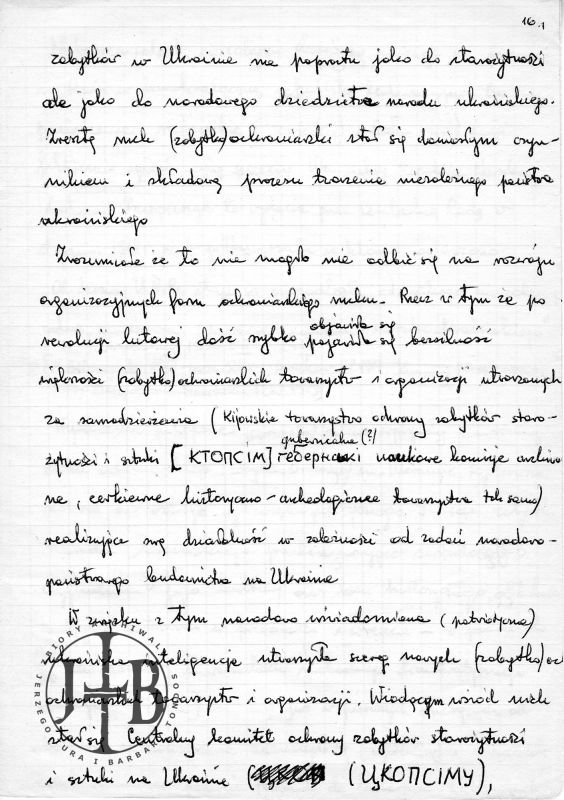 16.
zabytków w Ukrainie nie poprostu jako do starożytności
ale jako do narodowego dziedzictwa narodu ukraińskiego.
Zresztą ruch (zabytko)ochroniarski stał się doniosłym czyn-
nikiem i składową procesu tworzenia niezależnego państwa
ukraińskiego
Zrozumiałe że to nie mogło nie odbić się na rozwoju
organizacyjnych form ochroniarskiego ruchu. Rzecz w tym że po
objawiła się
rewolucji lutowej dość szybko pojawiła się bezsilność
większości (zabytko)ochroniarskich towarzystw i organizacji utworzonych
za samodzierżawia (Kijowskie towarzystwo ochrony zabytków staro-
gubernialne (?)
żytności i sztuki [КТОПСІМ] naukowe komisje archiwa
ne, cerkiewne historyczno-archeologiczne towarzystwa tak samo)
realizujące swą działalność w zależności od zadań narodowo-
państwowego budownictwa na Ukrainie
W związku z tym narodowo uświadomiona (patriotyczna)
ukraińska inteligencja utworzyła szereg nowych (zabytko)och
ochroniarskich towarzystw i organizacji. Wiodącym wśród nich
stał się Centralny komitet ochrony zabytków starożytności
i sztuki na Ukrainie (ЦКОПСІМУ),
ZBIORY ARCHIWALNE
JHB
JERZEGO JURA I BARBARA TOMSOO